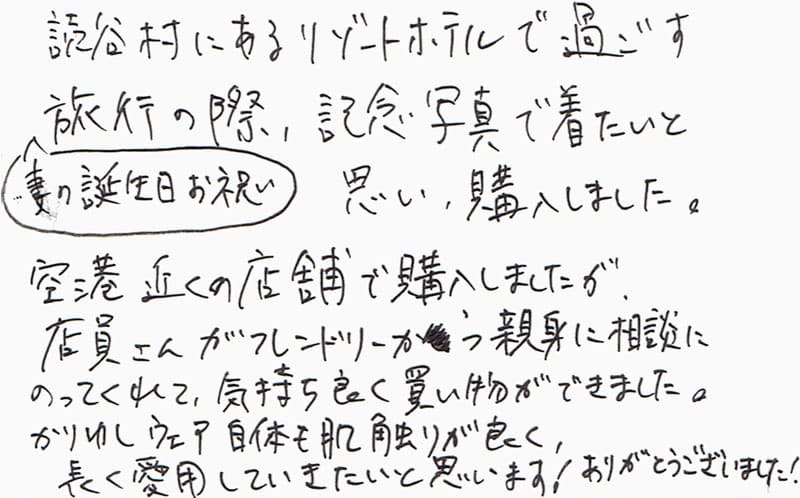 読谷村にあるリゾートホテルで過ごす
旅行の際、記念写真で着たいと
妻の誕生日お祝い
思い、購入しました。
空港近くの店舗で購入しましたが、
店員さんがフレンドリーかつ親身に相談に
のってくれて、気持ち良く買い物ができました。
かりゆしウェア自体も肌触りが良く、
長く愛用していきたいと思います!ありがとうございました!